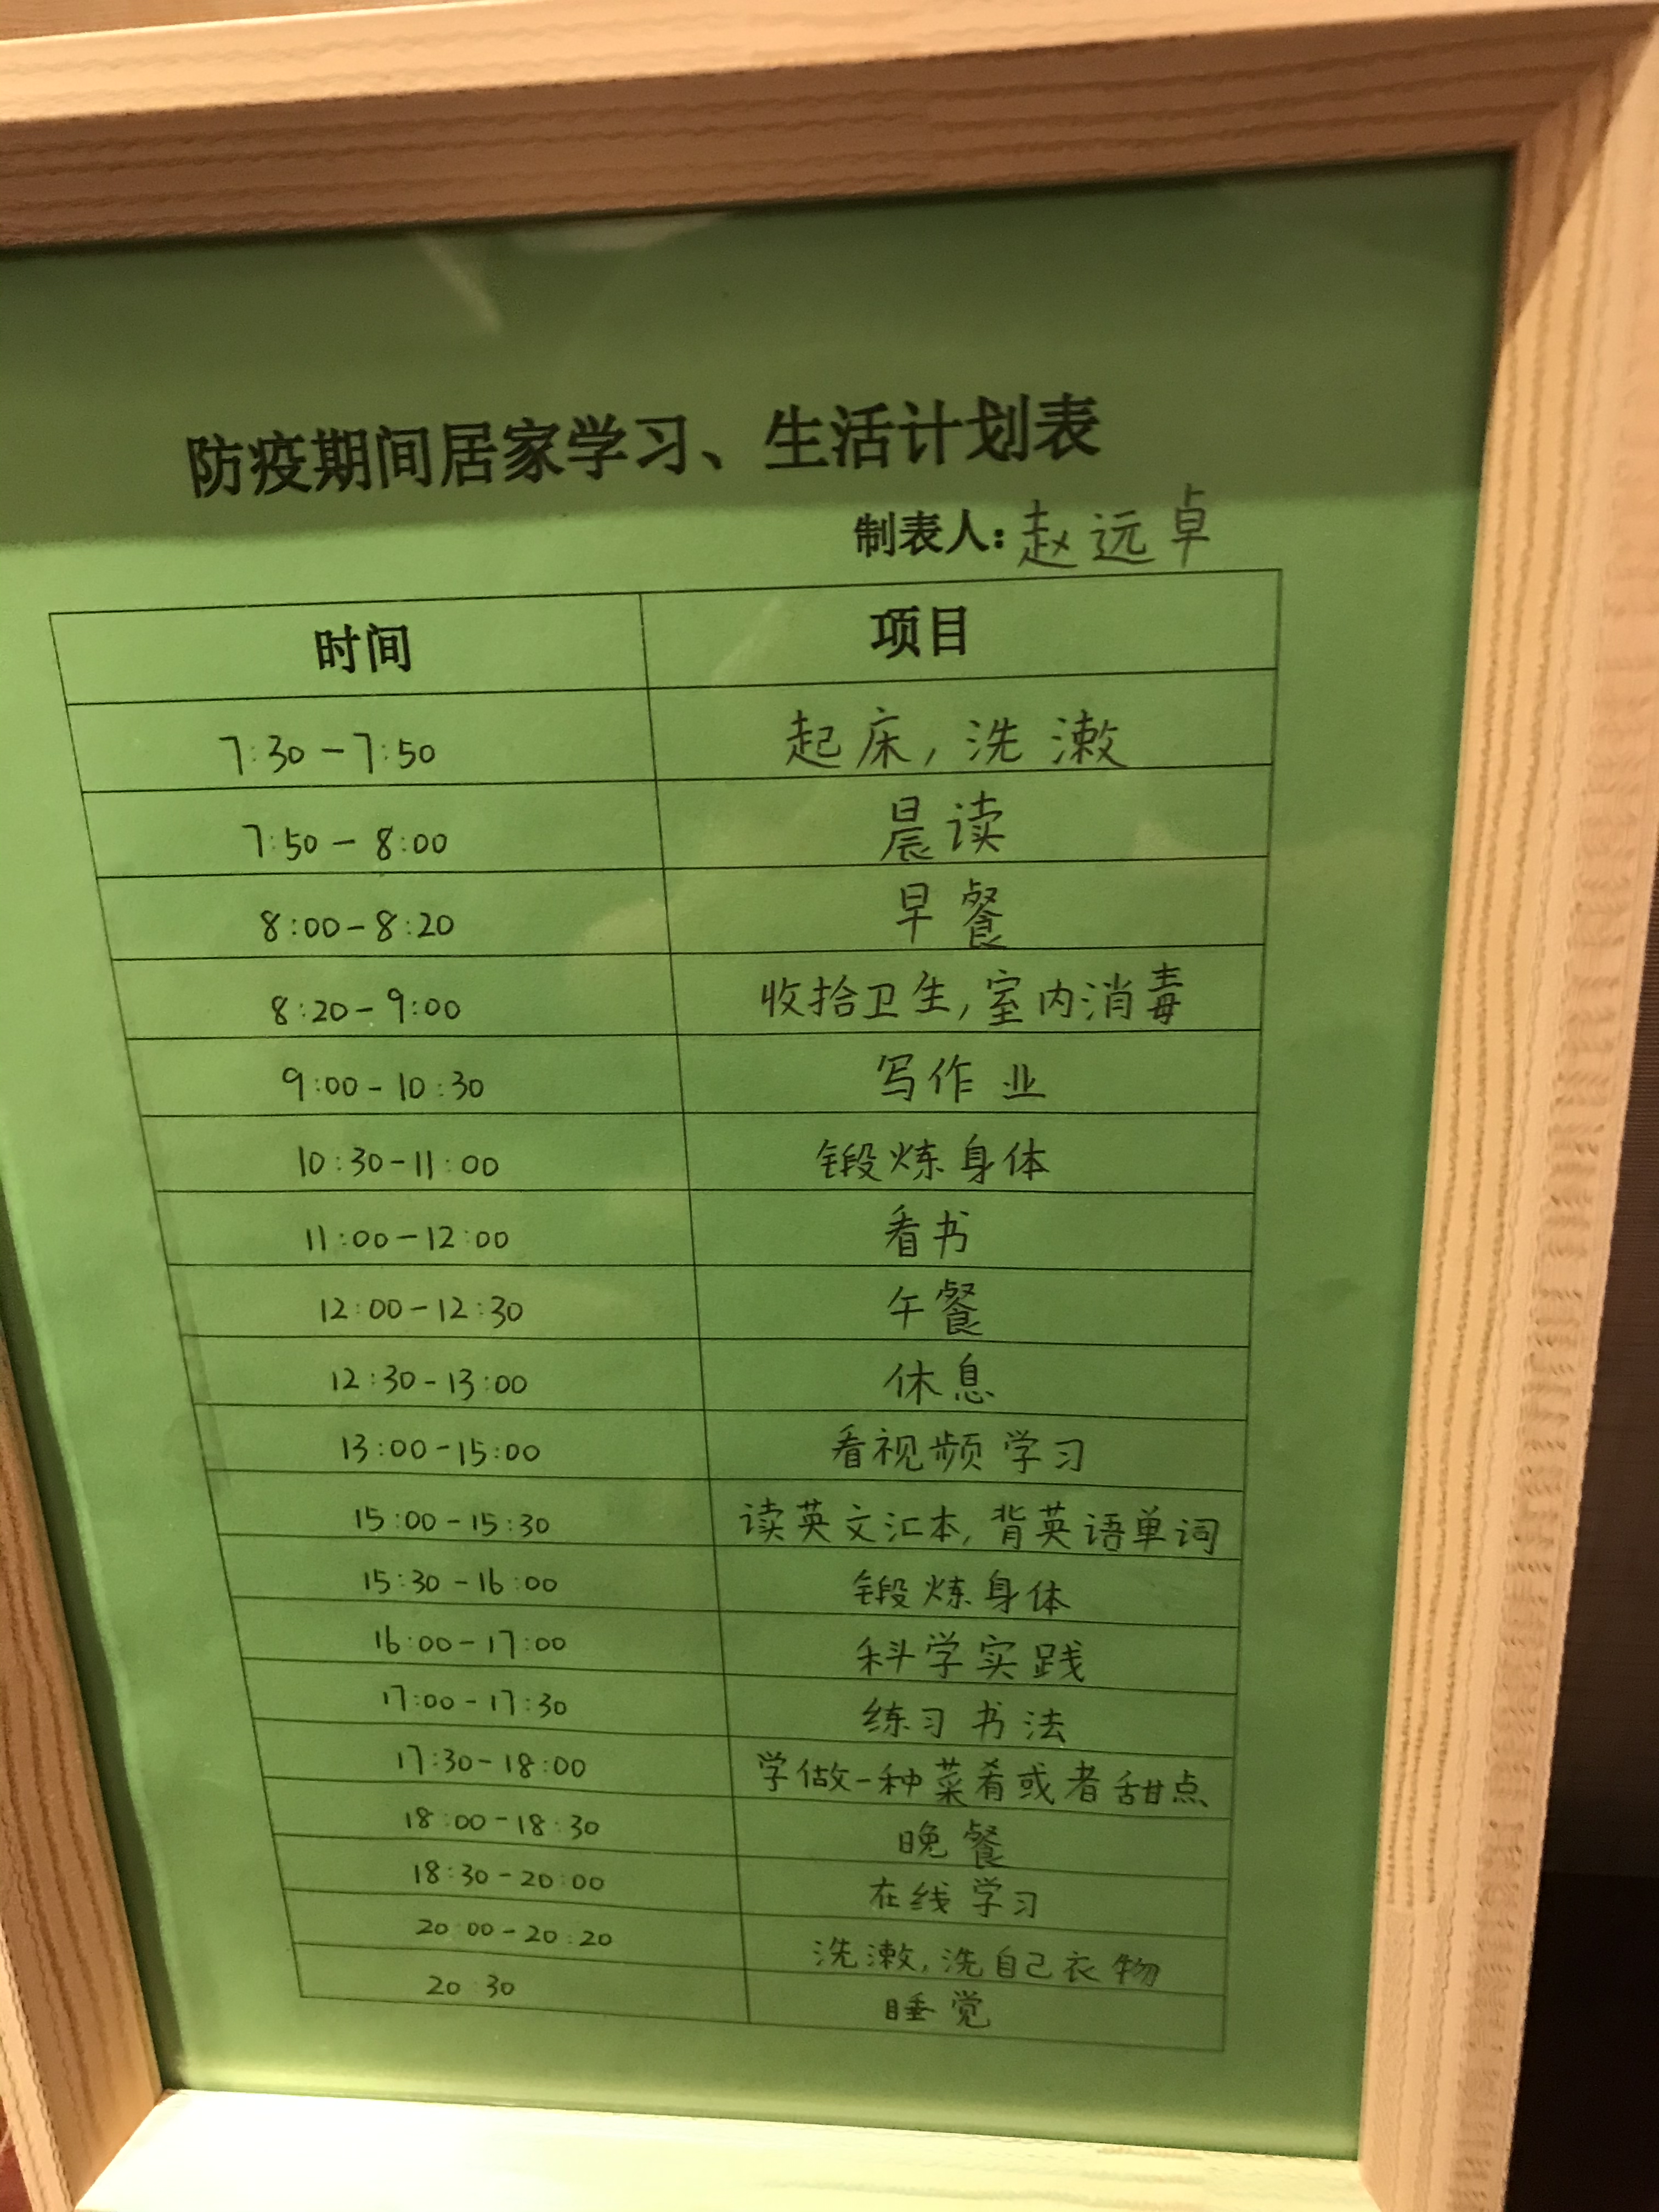 防疫期间居家学习、生活计划表
制表人:赵远卓
时间 项目
7:30-7:50 起床,洗漱
7:50-8:00 晨读
8:00-8:20 早餐
8:20-9:00 收拾卫生,室内消毒
9:00-10:30 写作业
10:30-11:00 锻炼身体
11:00-12:00 看书
12:00-12:30 午餐
12:30-13:00 休息
13:00-15:00 看视频学习
15:00-15:30 读英文汇本,背英语单词
15:30-16:00 锻炼身体
16:00-17:00 科学实践
17:00-17:30 练习书法
17:30-18:00 学做一种菜肴或者甜点
18:00-18:30 晚餐
18:30-20:00 在线学习
20:00-20:20 洗漱,洗自己衣物
20:30 睡觉